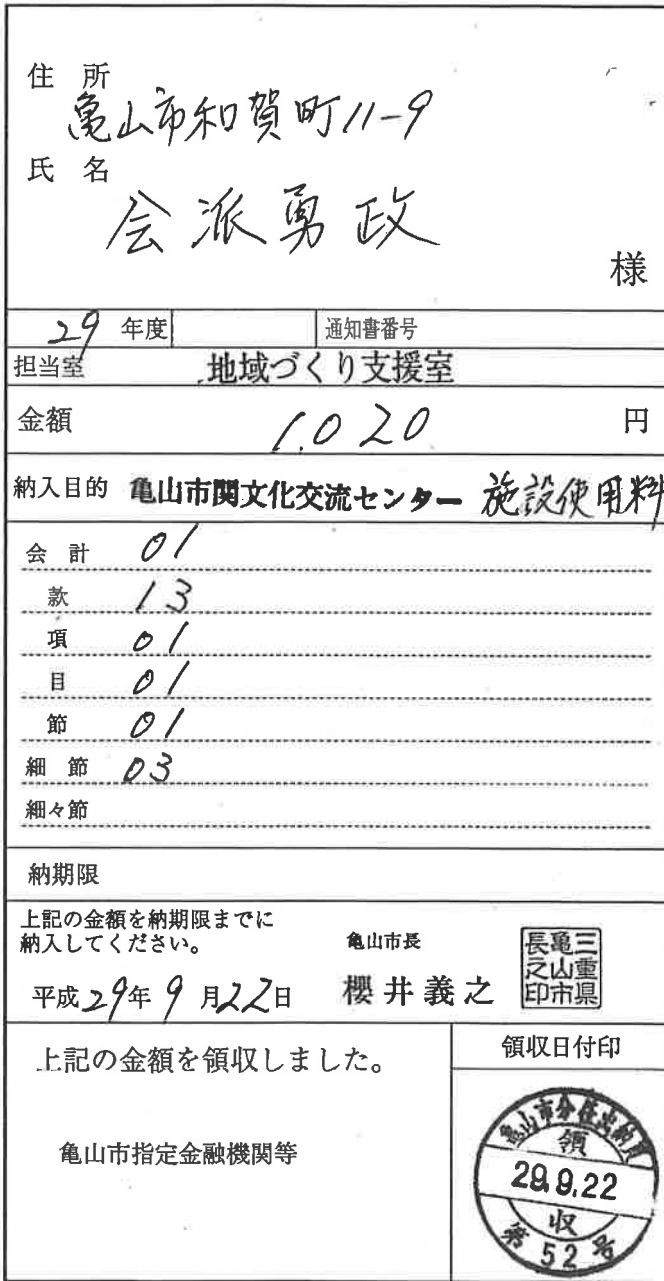 住所
亀山市和賀町11-9
氏名
会派勇政
様
29年度 通知書番号
担当室 地域づくり支援室
金額 1,020 円
納入目的 亀山市関文化交流センター 施設使用料
会計 01
款 13
項 01
目 01
節 01
細節 03
細々節
納期限
上記の金額を納期限までに
納入してください。
亀山市長
平成29年9月22日 櫻井義之
三重県
亀山市
長之印
上記の金額を領収しました。
領収日付印
亀山市指定金融機関等
亀山市分任出納員
領
29.9.22
収
第52号